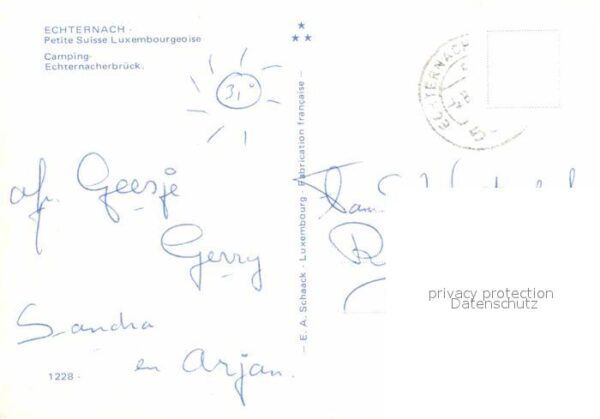 ECHTERNACH -
Petite Suisse Luxembourgeoise
Camping-
Echternacherbrück.
31°
afz. Geesje
Gerry
Sandra
en Arjan.
1228 -
— E. A. Schaack - Luxembourg - Fabrication française —
ECHTERNACH
Fam.
privacy protection
Datenschutz